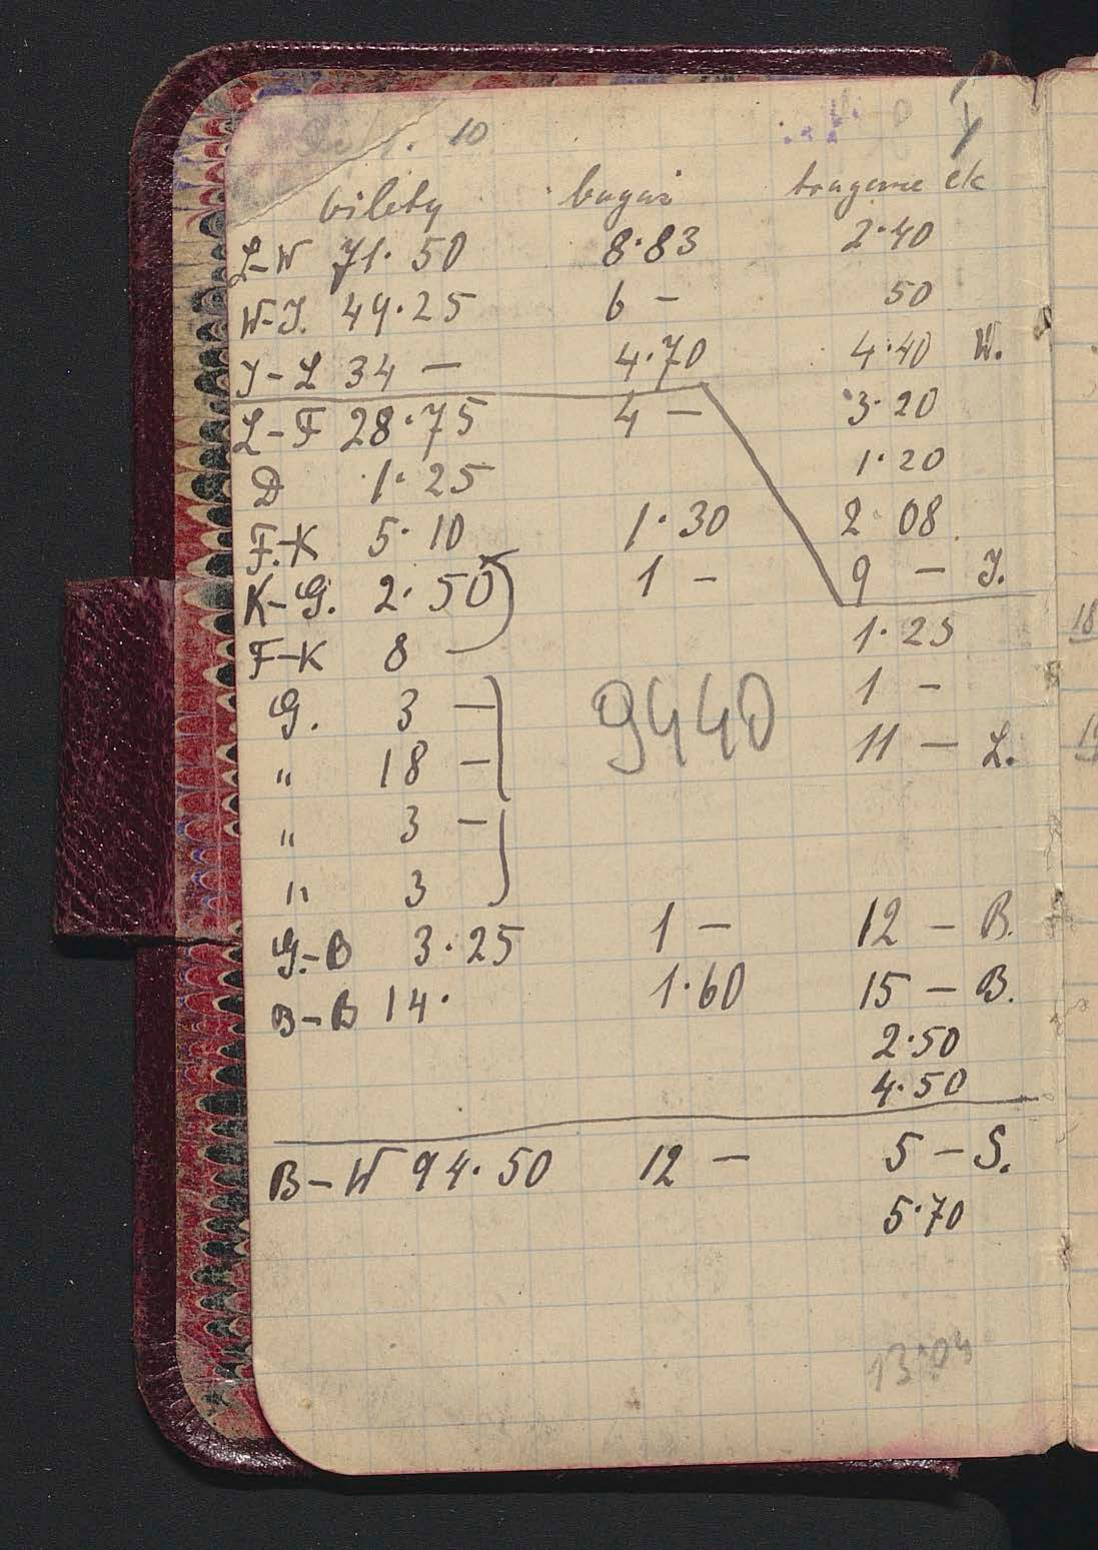 10
bilety bagaż tragowe etc
L-W 71·50 8·83 2·40
W-I. 49·25 6 - 50
I-L 34 - 4·70 4·40 W.
L-F 28·75 4 - 3·20
D 1·25 1·20
F.-K 5·10 1·30 2·08
K-G. 2·50 1 - 9 - I.
F-K 8 - 1·25
G. 3 - 9440 1 -
" 18 - 11 - L.
" 3 -
" 3
G.-B 3·25 1 - 12 - B.
B-B 14· 1·60 15 - B.
2·50
4·50
B-W 94·50 12 - 5 - S.
5·70
13·04